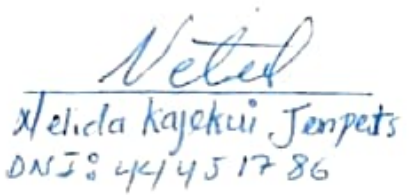 Nelida Kajekui Jempets
DNI: 44451786